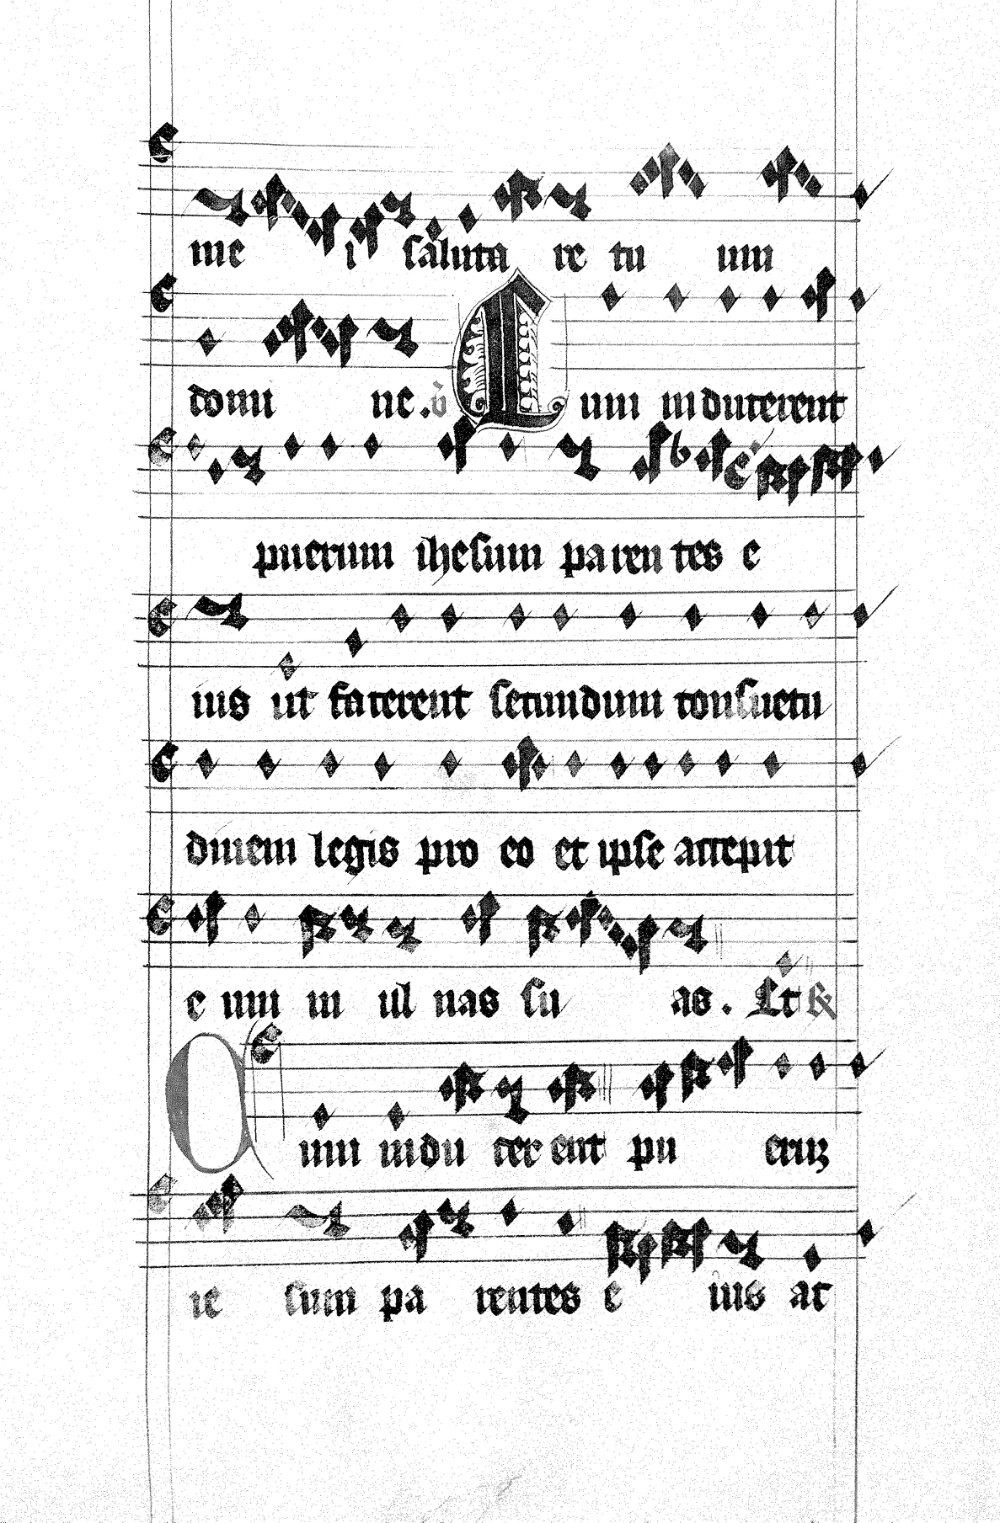 me i saluta re tu um
domi ne. v̊ Cum inducerent
puerum ihesum paren tes e
ius ut facerent secundum consuetu
dinem legis pro eo et ipse accepit
e um in ul nas su as. Et &
Cum indu cer ent pu eruʒ
ie sum pa rentes e ius ac